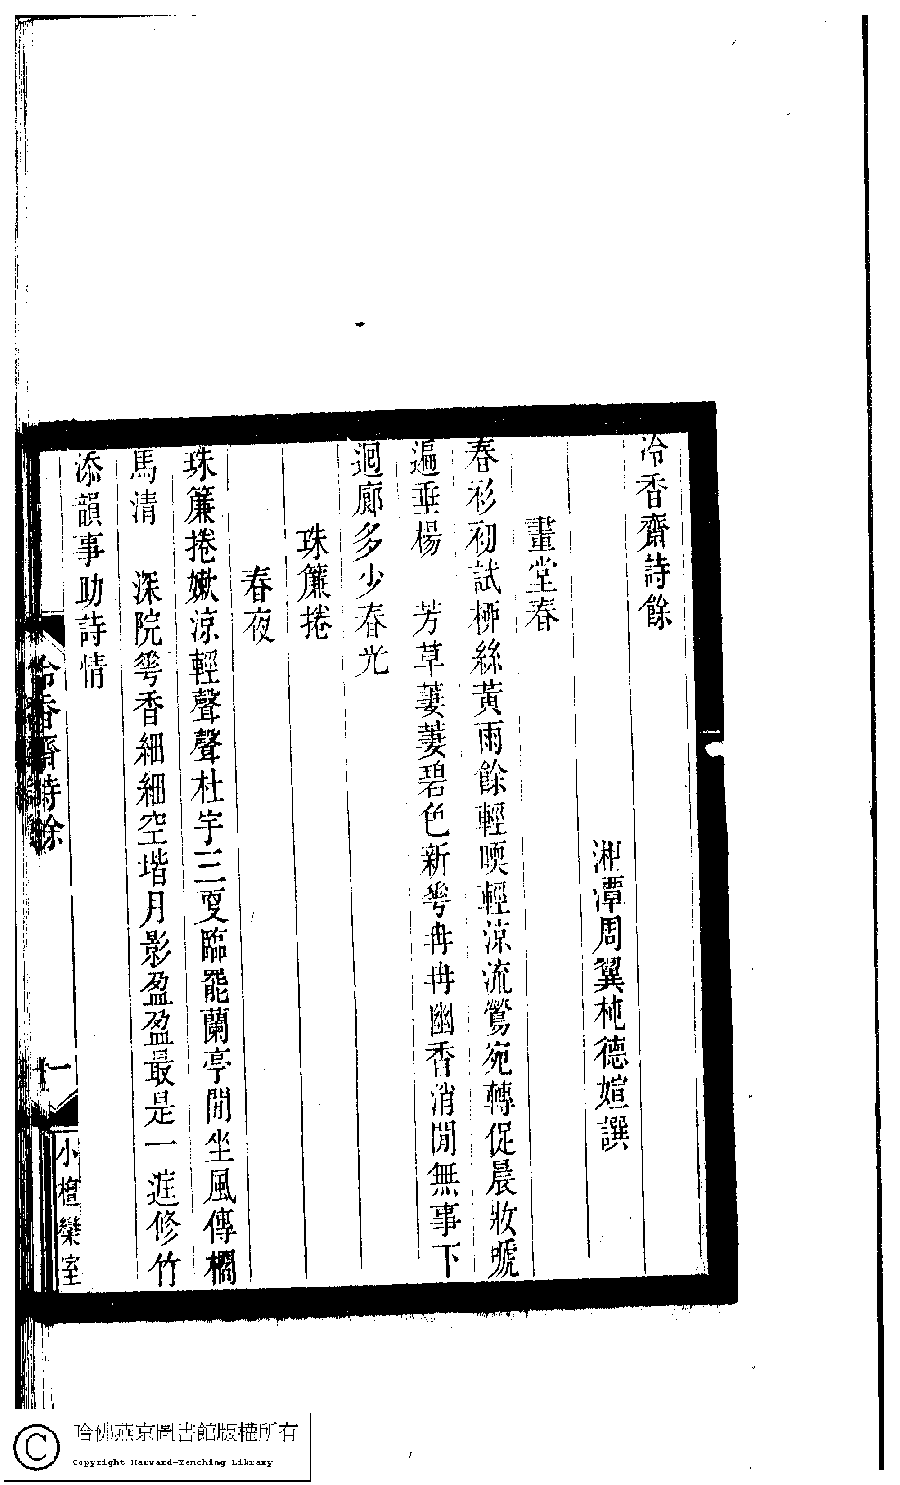 冷香齋詩餘
湘潭周翼杶德媗譔
畫堂春
春衫初試柳絲黃雨餘輕暖輕涼流鶯宛轉促晨妝唬
遍垂楊　芳草萋萋碧色新琴冉冉幽香消閒無事下
迴廊多少春光
珠簾捲
春夜
珠簾捲嫩涼輕聲聲杜宇三更臨罷蘭亭閒坐風傳櫩
馬清　深院琴香細細空堦月影盈盈最是一庭修竹
添韻事助詩情
冷香齋詩餘
一
小檀欒室
哈佛燕京圖書館版權所有
Copyright Harvard-Yenching Library